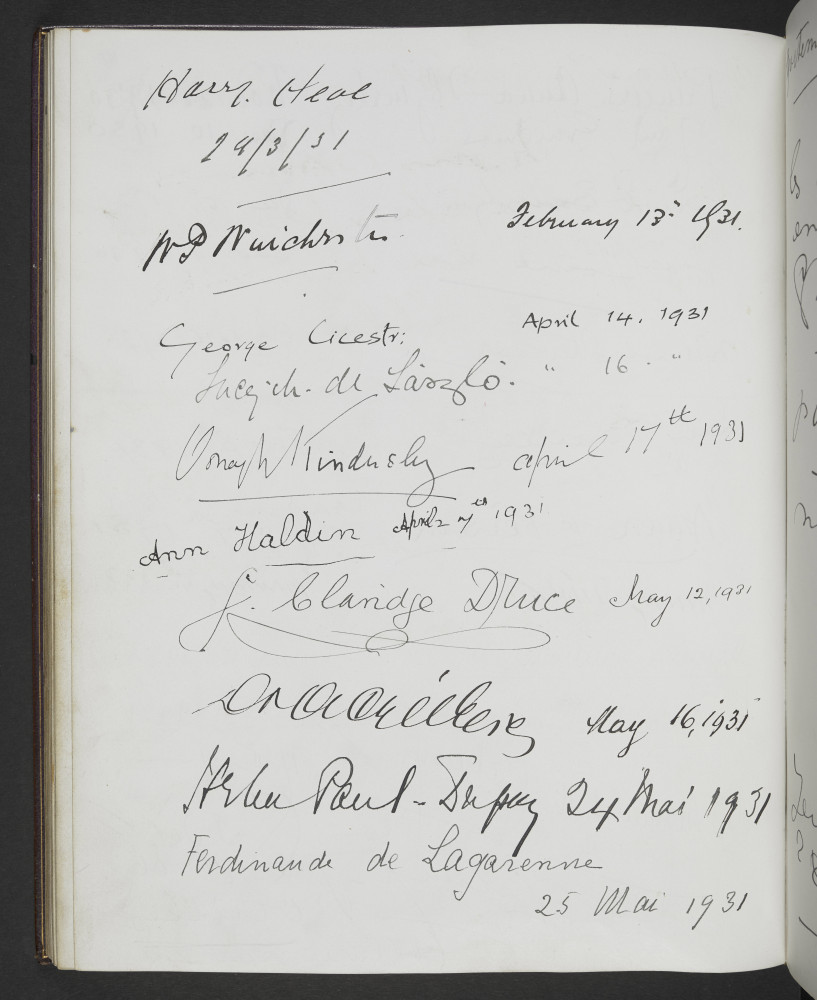 Harry
29/3/31
February 13th 1931.
George Cicestr: April 14. 1931
de László. " 16 . "
Oonagh Kindersley April 17th 1931
Ann Haldin April 27th 1931
G. Claridge Druce May 12, 1931
Dr May 16, 1931
Helen Paul-Dupuy 24 Mai 1931
Ferdinande de Lagarenne
25 Mai 1931